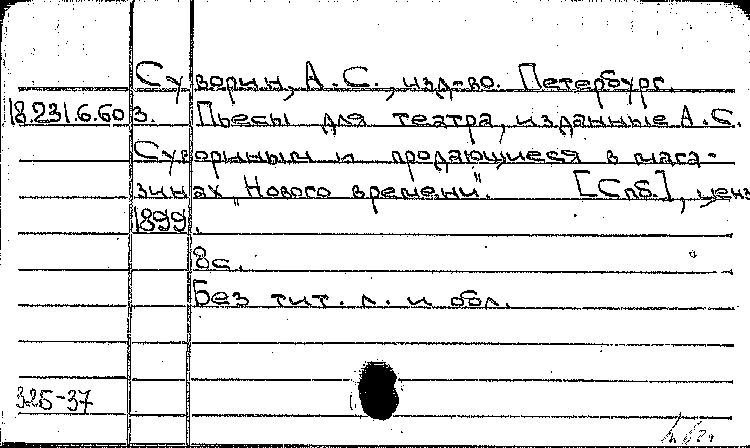 Суворин, А.С., изд-во. Петербург.
18.231.6.603. Пьесы для театра, изданные А.С.
Сувориным и продающиеся в мага-
зинах "Нового времени". [Спб.], ценз
1899.
8с.
Без тит. л. и обл.
325-37